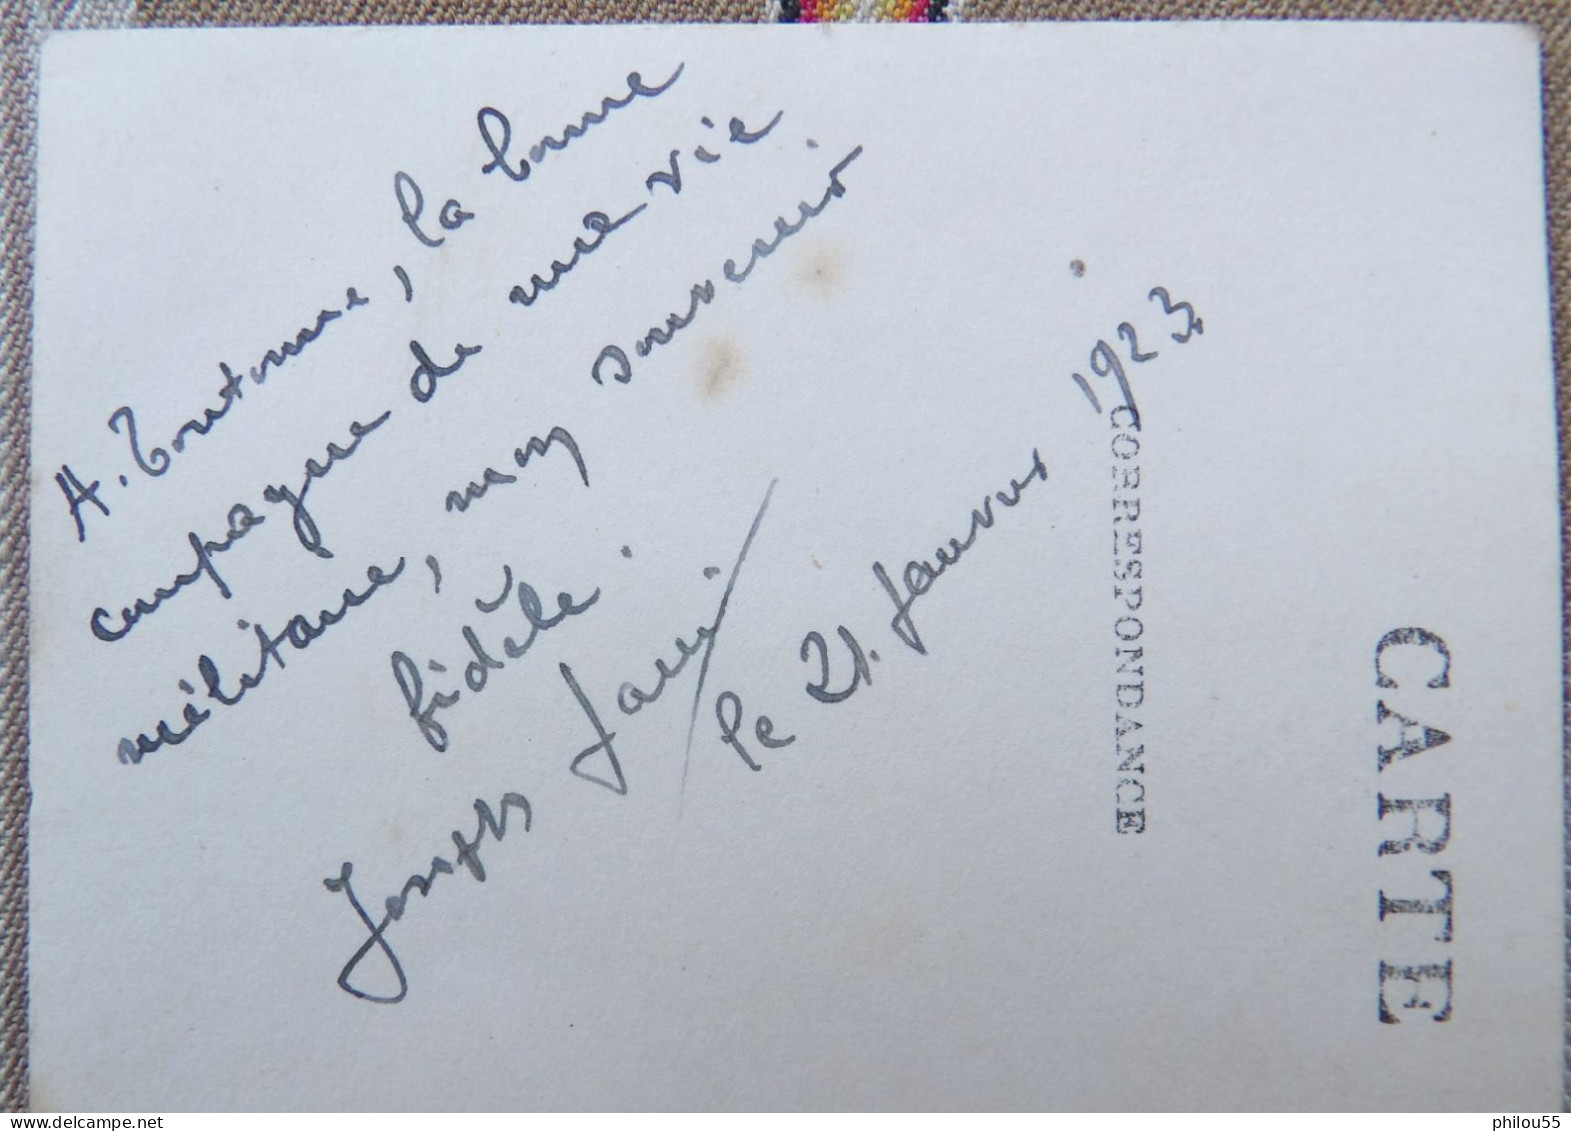 A. Toutoune, la bonne
compagne de ma vie
militaire, mon souvenir
fidèle.
Joseph
le 21. Janvier 1923
CORRESPONDANCE
CARTE
philou55